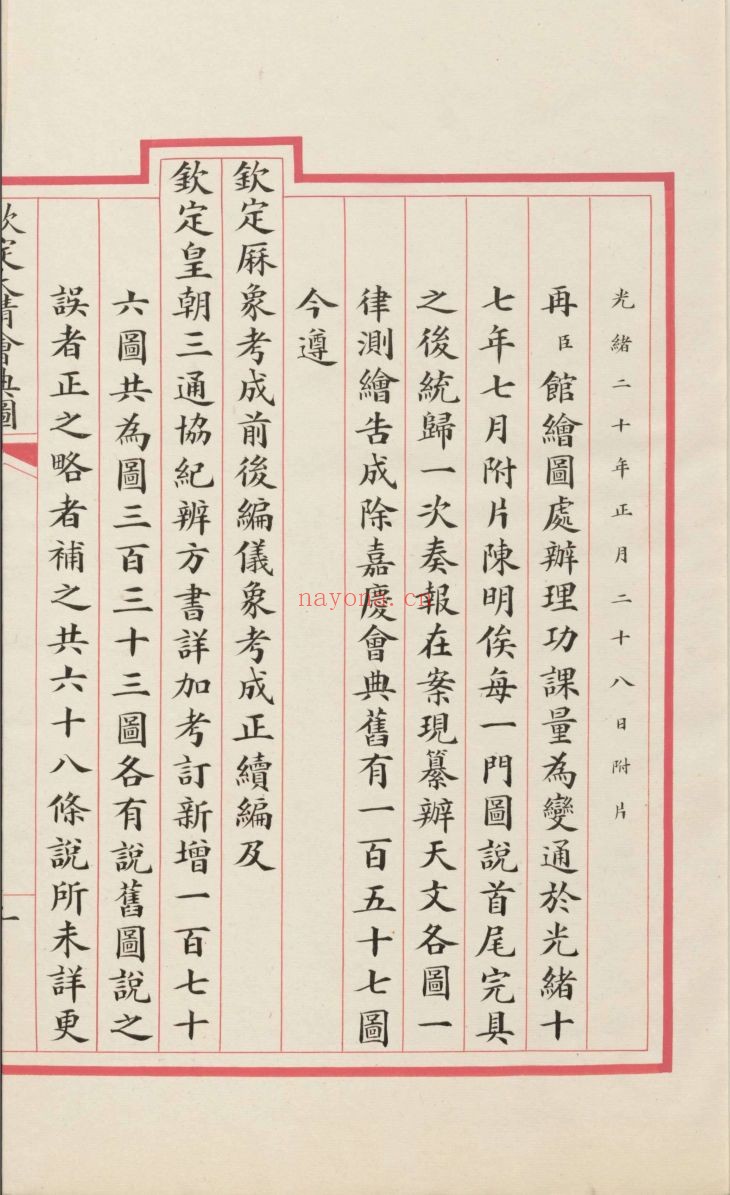 光緒二十年正月二十八日附片
再臣館繪圖處辦理功課量為變通於光緒十
七年七月附片陳明俟每一門圖說首尾完具
之後統歸一次奏報在案現纂辦天文各圖一
律測繪告成除嘉慶會典舊有一百五十七圖
今遵
欽定厤象考成前後編儀象考成正續編及
欽定皇朝三通協紀辨方書詳加考訂新增一百七十
六圖共為圖三百三十三圖各有說舊圖說之
誤者正之略者補之共六十八條說所未詳更
欽定大清會典圖
一
nayona.cn